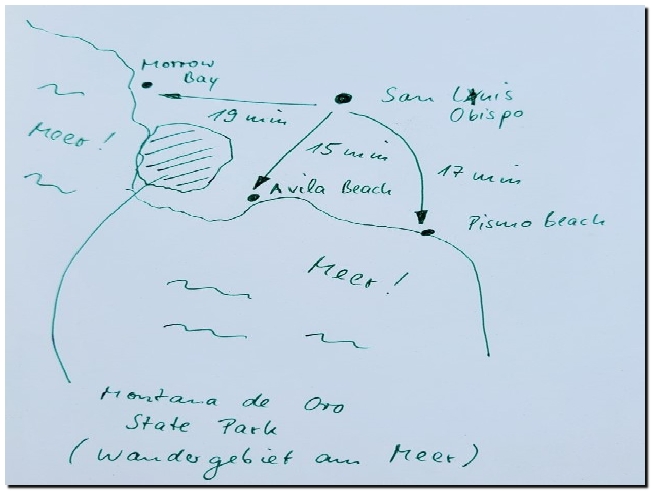 Morrow
Bay
San Luis
Obispo
19 min
Meer!
15 min
17 min
Avila Beach
Pismo Beach
Meer!
Montana de Oro
State Park
(Wandergebiet am Meer)